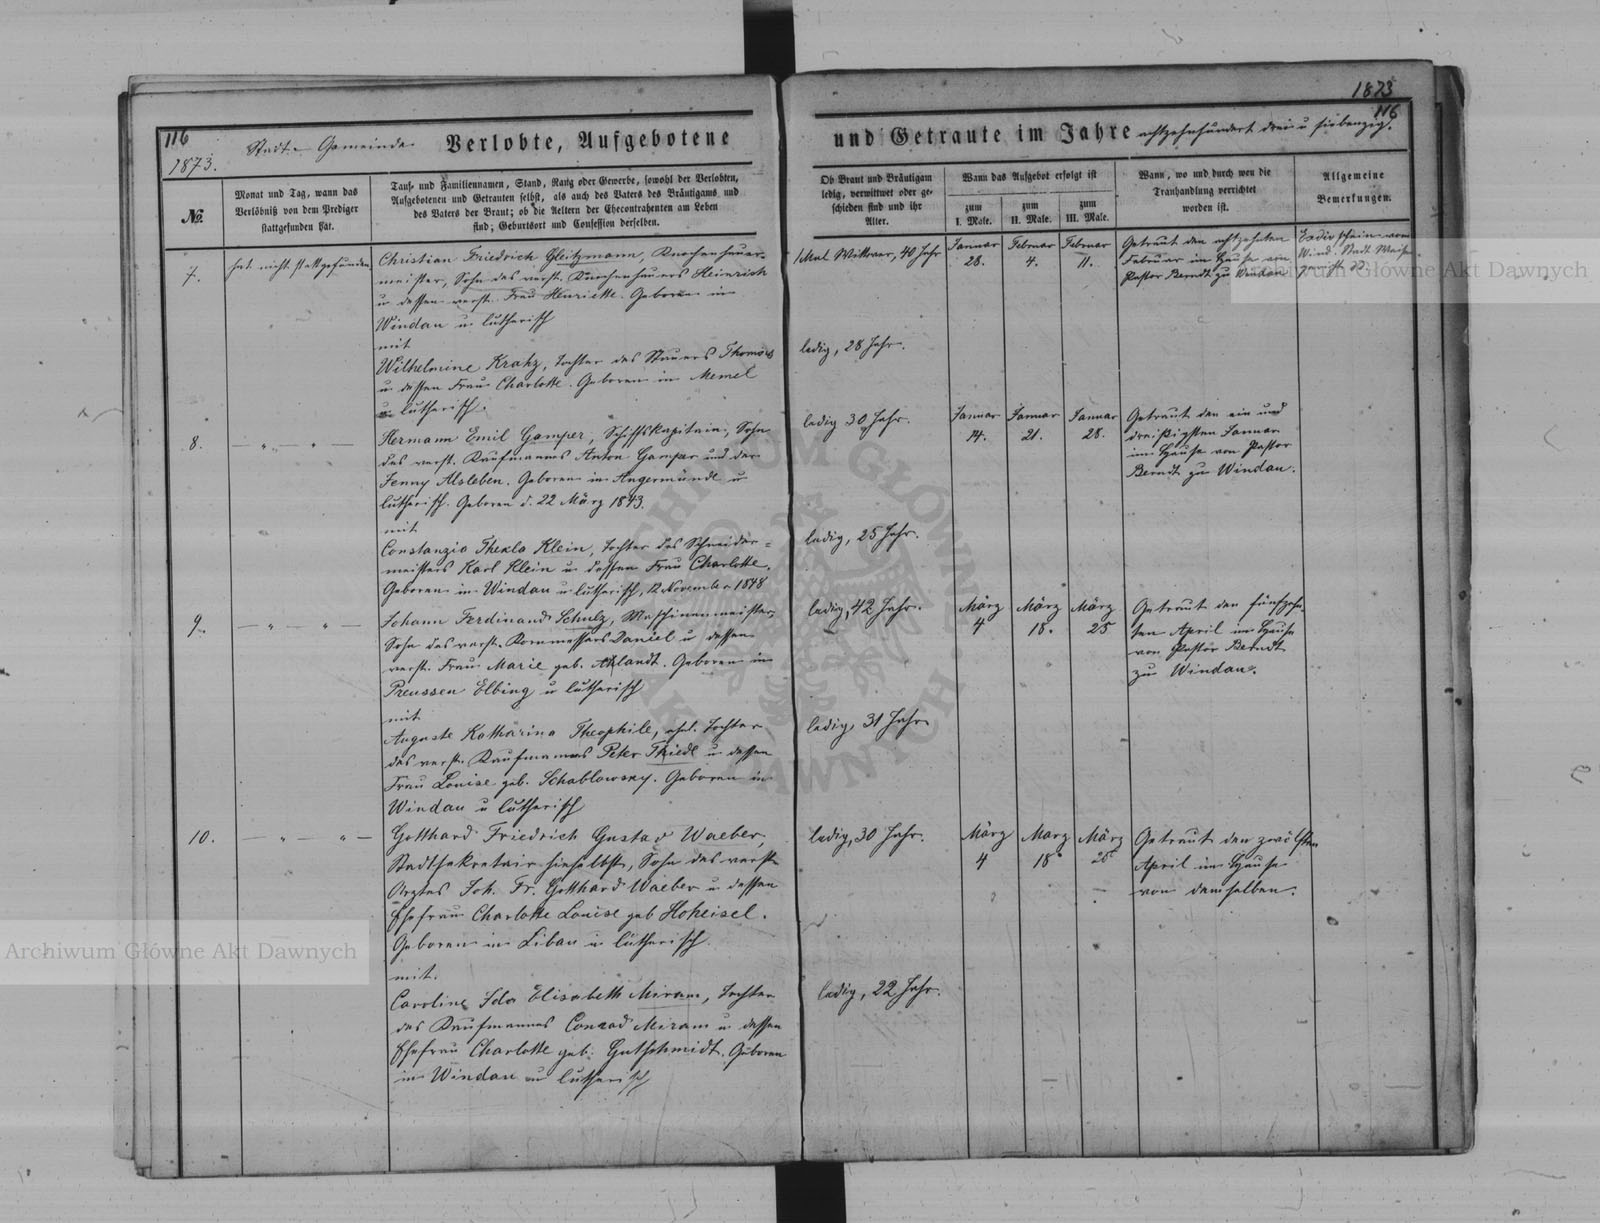 1873
116
116
1873.
Stadt - Gemeinde
Verlobte, Aufgebotene
und Getraute im Jahre achtzehnhundert drei u siebenzig.
No.
Monat und Tag, wann das
Verlöbniß von dem Prediger
stattgefunden hat.
Tauf- und Familiennamen, Stand, Rang oder Gewerbe, sowohl der Verlobten,
Aufgebotenen und Getrauten selbst, als auch des Vaters des Bräutigams und
des Vaters der Braut; ob die Aeltern der Ehecontrahenten am Leben
sind; Geburtsort und Confession derselben.
Ob Braut und Bräutigam
ledig, verwittwet oder ge-
schieden sind und ihr
Alter.
Wann das Aufgebot erfolgt ist
zum
I. Male.
zum
II. Male.
zum
III. Male.
Wann, wo und durch wen die
Trauhandlung verrichtet
worden ist.
Allgemeine
Bemerkungen.
7.
hat nicht stattgefunden
Christian Friedrich Gleitzmann, Knochenhauer-
meister, Sohn des verst. Knochenhauers Heinrich
u dessen verst. Frau Henriette. Geboren in
Windau u lutherisch
mit
Wilhelmine Kratz, Tochter des Stauers Thomas
u dessen Frau Charlotte. Geboren in Memel
u lutherisch.
1 Mal Wittwer, 40 Jahr
ledig, 28 Jahr.
Januar
28.
Februar
4.
Februar
11.
Getraut den achtzehnten
Februar im Hause von
Pastor Berndt zu Windau
8.
— „ „ —
Hermann Emil Gamper, Schiffskapitain, Sohn
des verst. Kaufmannes Anton Gamper und der
Jenny Alsleben. Geboren in Angermünde u
lutherisch. Geboren d. 22 März 1843.
mit
Constanzia Thekla Klein, Tochter des Schneider=
meisters Karl Klein u dessen Frau Charlotte.
Geboren in Windau u lutherisch, 12 November 1848
ledig 30 Jahr.
ledig, 25 Jahr.
Januar
14.
Januar
21.
Januar
28.
Getraut den ein und
dreißigsten Januar
im Hause von Pastor
Berndt zu Windau.
9.
— „ — „ —
Johann Ferdinand Schulz, Maschinenmeister,
Sohn des verst. Daniel u dessen
verst. Frau Marie geb. Geboren in
Preussen Elbing u lutherisch
mit
Auguste Katharina Theophile, ehel. Tochter
des verst. Kaufmannes Peter Thiedl u dessen
Frau Louise geb. Schablowsky. Geboren in
Windau u lutherisch
ledig, 42 Jahr.
ledig, 31 Jahr
März
4
März
18.
März
25
Getraut den fünfzehn
ten April im Hause
von Pastor Berndt
zu Windau.
10.
— „ „ —
Gotthard Friedrich Gustav Waeber,
Stadtsekretair hieselbst, Sohn des verst.
Arztes Joh. Fr. Gotthard Waeber u dessen
Ehefrau Charlotte Louise geb Hoheisel.
Geboren in Libau u lutherisch.
mit.
Caroline Ida Elisabeth Miram, Tochter
des Kaufmannes Conrad Miram u dessen
Ehefrau Charlotte geb. Gutschmidt. Geboren
in Windau u lutherisch
ledig, 30 Jahr.
ledig, 22 Jahr.
März
4
März
18
März
25
Getraut den zwölften
April im Hause
von demselben.
Archiwum Główne Akt Dawnych
Archiwum Główne Akt Dawnych
ARCHIWUM GŁÓWNE AKT DAWNYCH